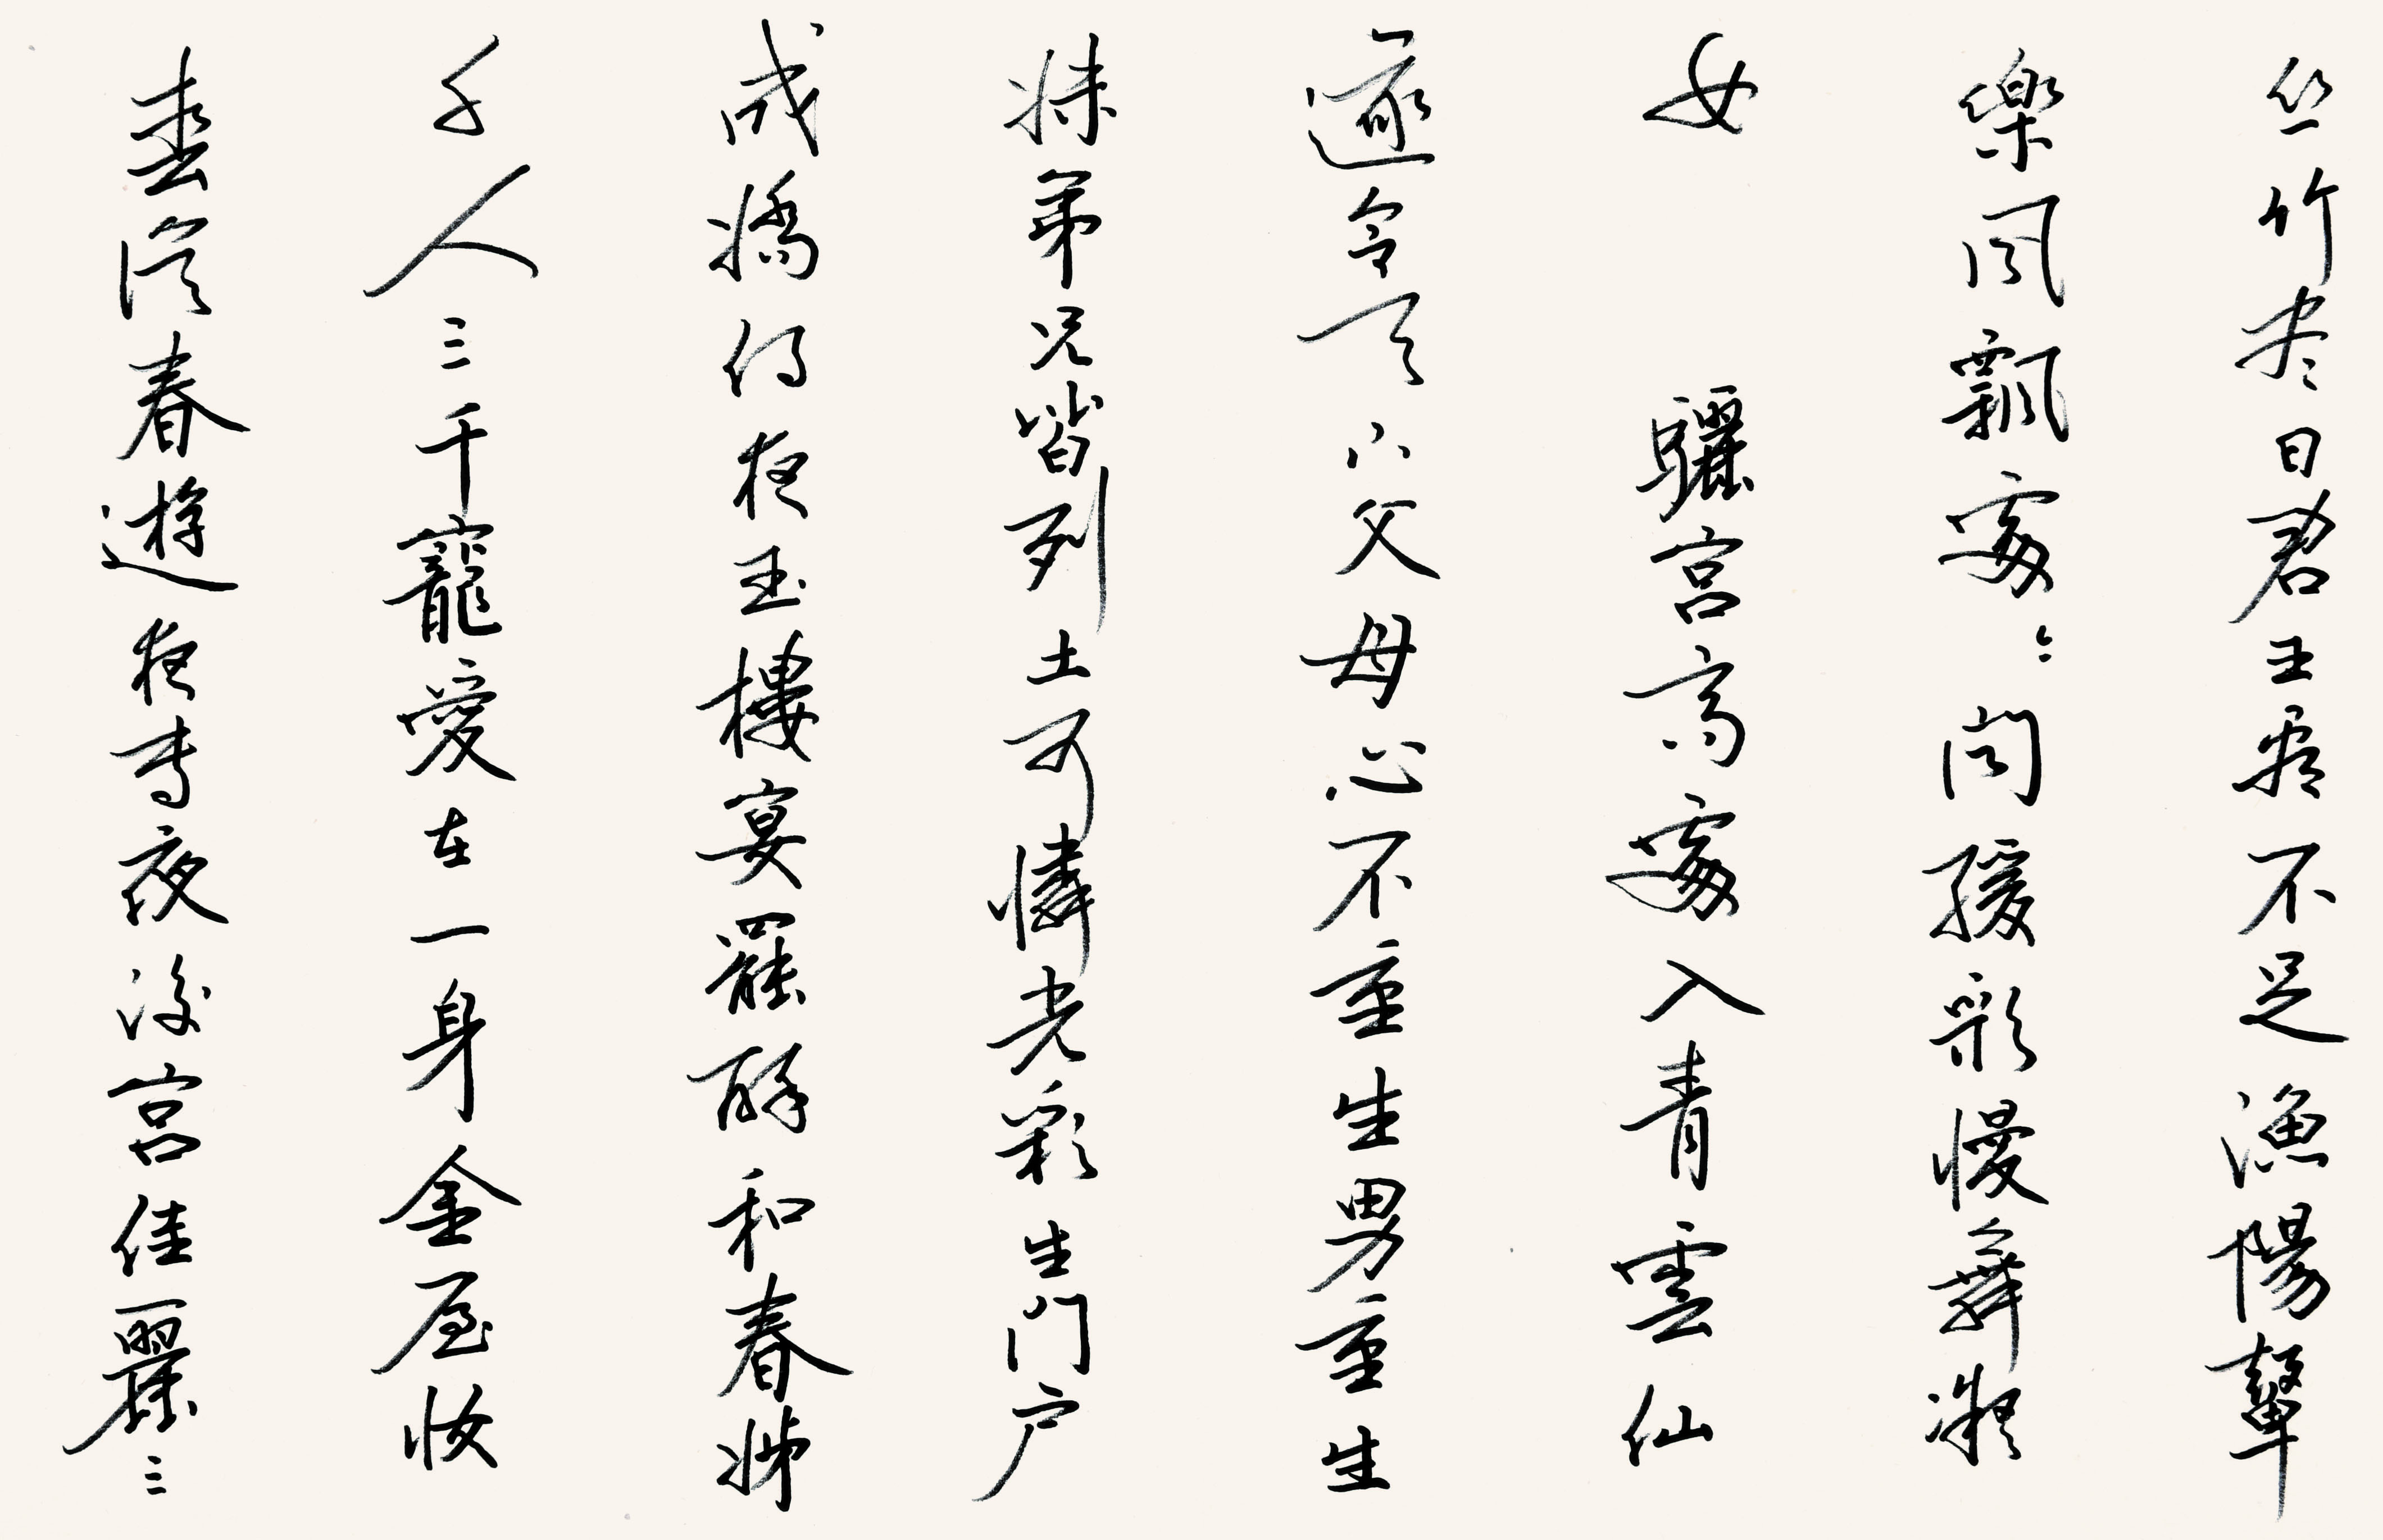 春從春遊夜專夜後宮佳麗三
千人三千寵愛在一身金屋妝
成嬌侍夜玉樓宴罷醉和春姊
妹弟兄皆列土可憐光彩生门户
遂令天下父母心不重生男重生
女 驪宮高處入青雲仙
樂风飄處〻闻緩歌慢舞凝
丝竹尽日君王看不足漁陽鼙